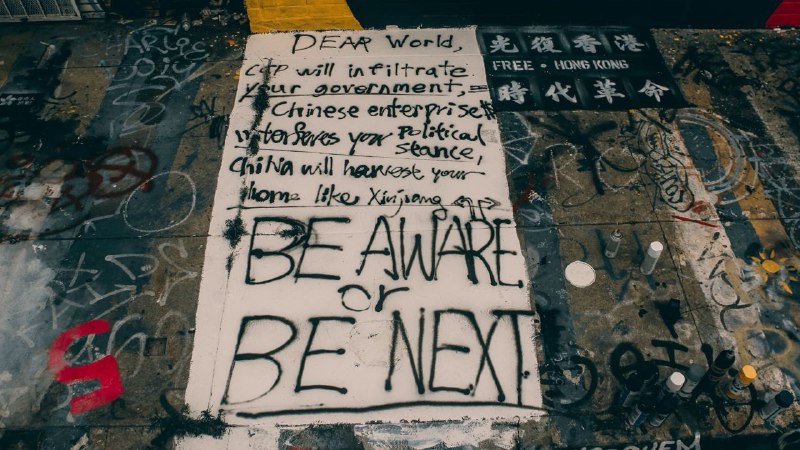 DEAR World,
CCP will infiltrate
your government,
Chinese enterprise
interferes your Political
stance,
ChiNa will harvest your
home like Xinjiang
BE AWARE
or
BE NEXT
光復香港
FREE · HONG KONG
時代革命